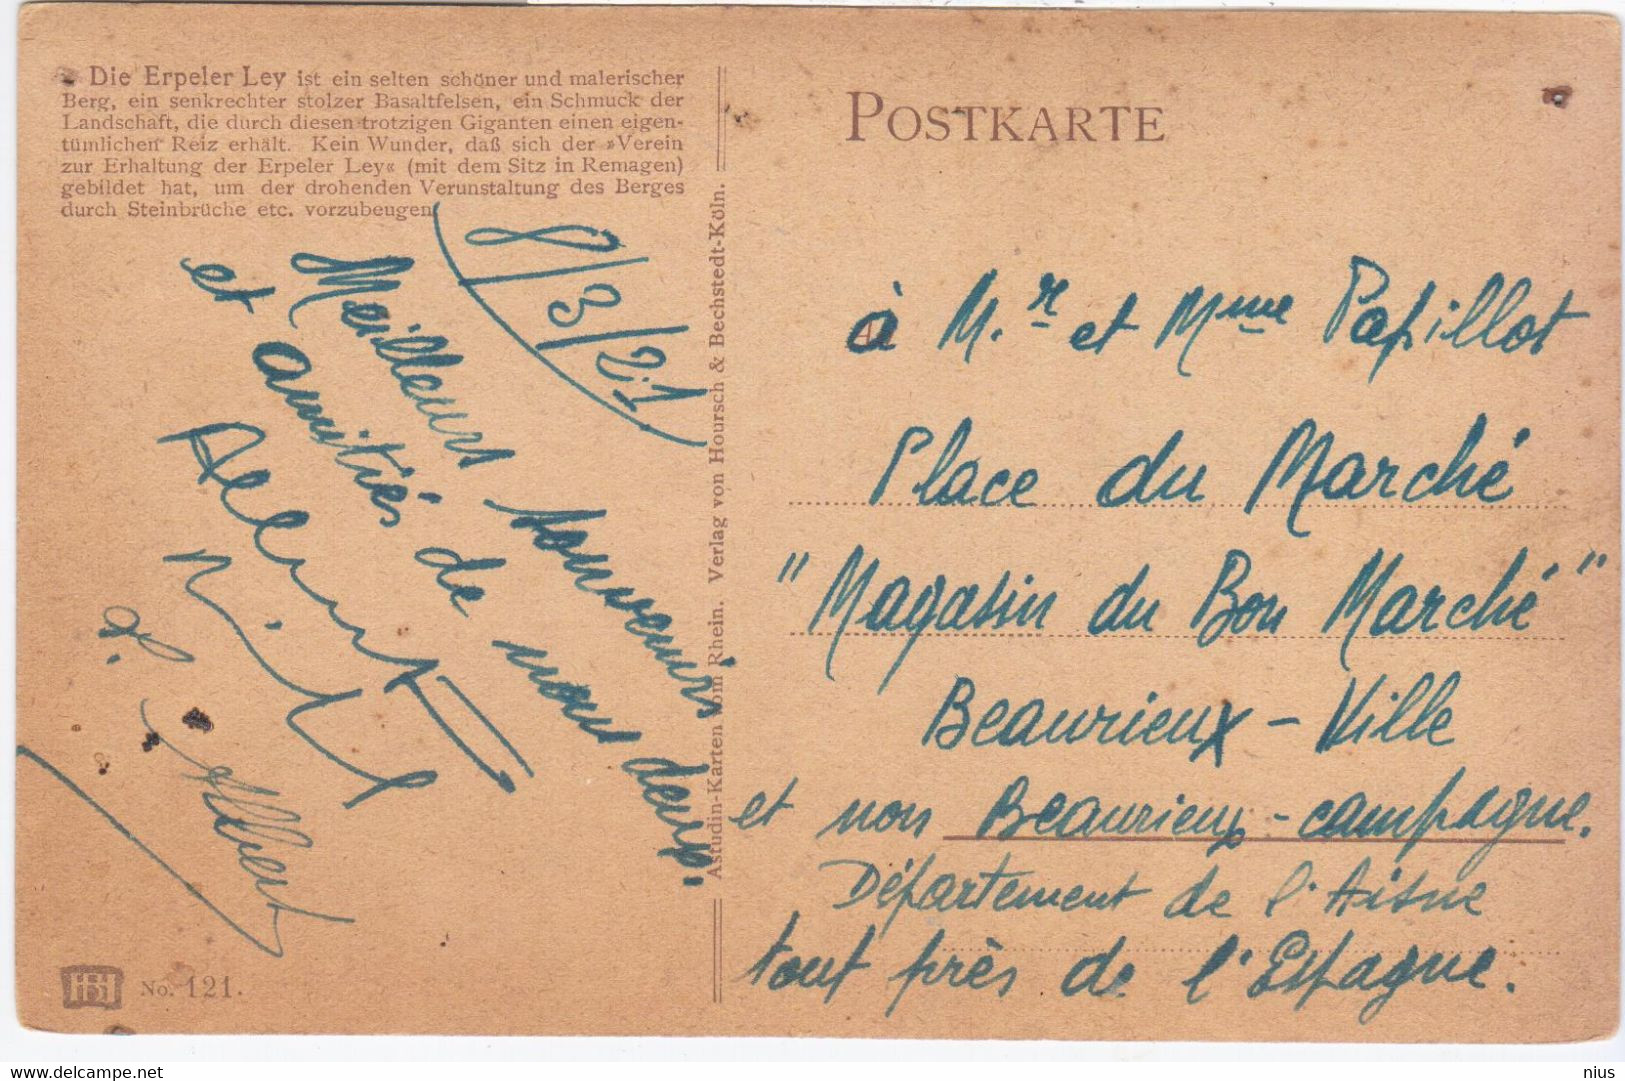 Die Erpeler Ley ist ein selten schöner und malerischer
Berg, ein senkrechter stolzer Basaltfelsen, ein Schmuck der
Landschaft, die durch diesen trotzigen Giganten einen eigen-
tümlichen Reiz erhält. Kein Wunder, daß sich der »Verein
zur Erhaltung der Erpeler Ley« (mit dem Sitz in Remagen)
gebildet hat, um der drohenden Verunstaltung des Berges
durch Steinbrüche etc. vorzubeugen.
8/3/21
Meilleurs souvenirs
et amitiés de nous deux.
P. Albert
No. 121.
Astudin-Karten vom Rhein. Verlag von Hoursch & Bechstedt-Köln.
POSTKARTE
à M.r et Mme Papillot
Place du Marché
"Magasin du Bon Marché"
Beaurieux - Ville
et non Beaurieux - campagne.
Département de l'Aisne
tout près de l'Espagne.
delcampe.net
nius